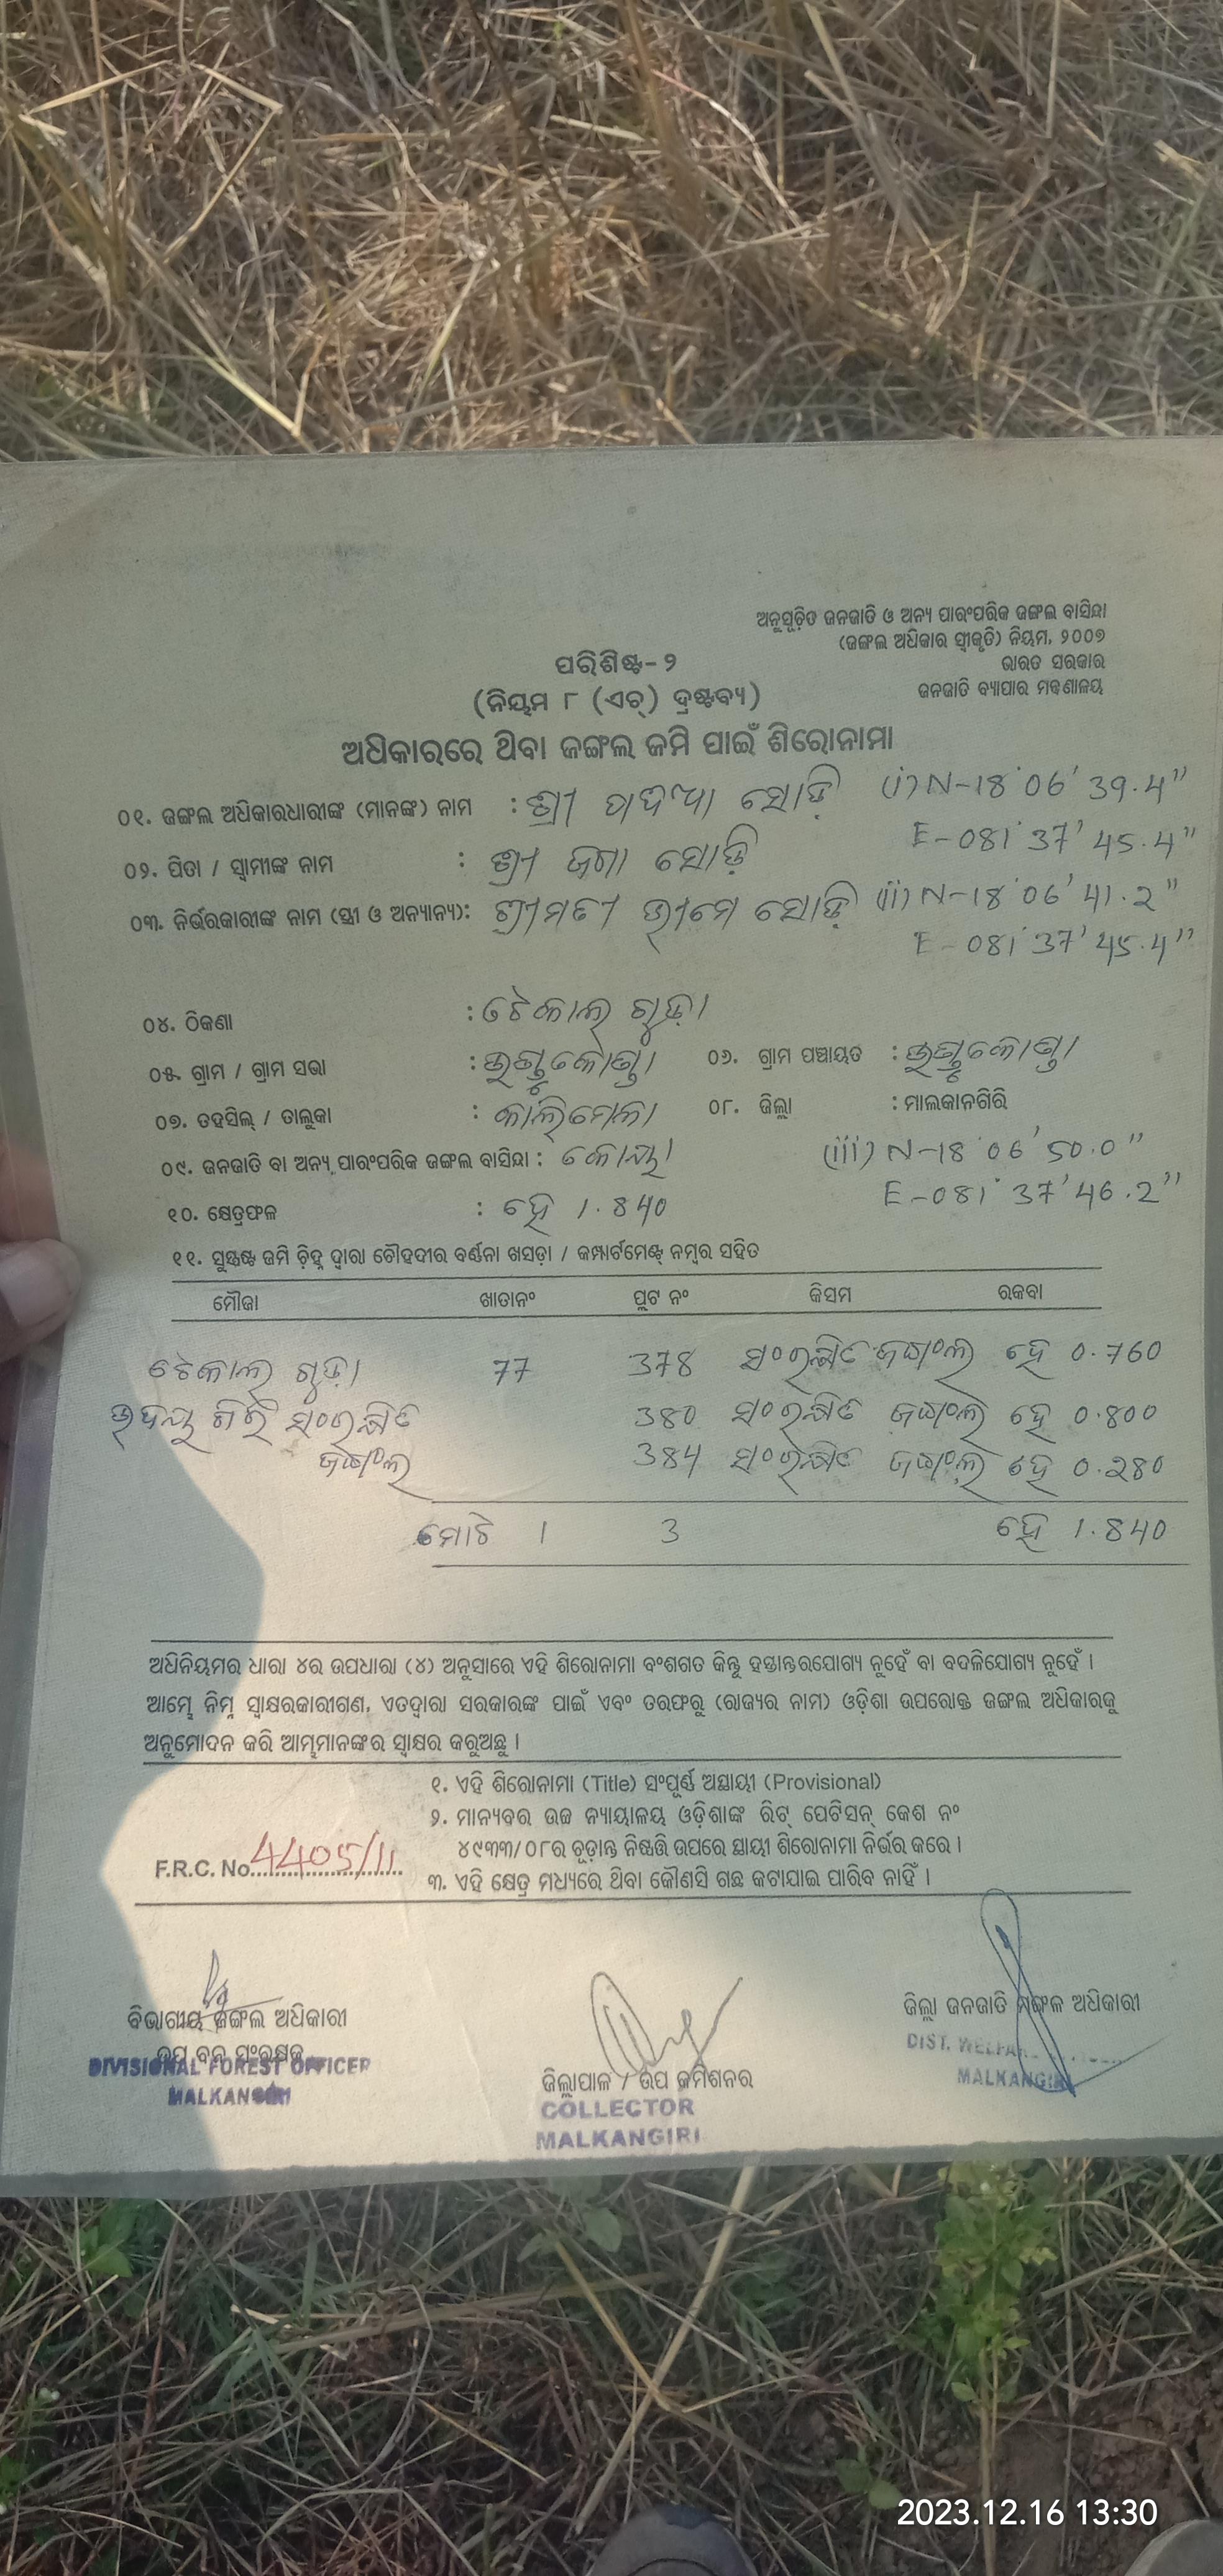 ଅନୁସୂଚିତ ଜନଜାତି ଓ ଅନ୍ୟ ପାରଂପରିକ ଜଙ୍ଗଲ ବାସିନ୍ଦା
(ଜଙ୍ଗଲ ଅଧିକାର ସ୍ୱୀକୃତି) ନିୟମ, ୨୦୦୭
ଭାରତ ସରକାର
ଜନଜାତି ବ୍ୟାପାର ମନ୍ତ୍ରଣାଳୟ
ପରିଶିଷ୍ଟ-୨
(ନିୟମ ୮ (ଏଚ୍) ଦ୍ରଷ୍ଟବ୍ୟ)
ଅଧିକାରରେ ଥିବା ଜଙ୍ଗଲ ଜମି ପାଇଁ ଶିରୋନାମା
୦୧. ଜଙ୍ଗଲ ଅଧିକାରଧାରୀଙ୍କ (ମାନଙ୍କ) ନାମ : ଶ୍ରୀ ସୋଡ଼ି (i) N-18°06'39.4"
E-081°37'45.4"
୦୨. ପିତା / ସ୍ୱାମୀଙ୍କ ନାମ : ଶ୍ରୀ ଜଗା ସୋଡ଼ି
୦୩. ନିର୍ଭରକାରୀଙ୍କ ନାମ (ସ୍ତ୍ରୀ ଓ ଅନ୍ୟାନ୍ୟ): ଶ୍ରୀମତୀ ଭୀମେ ସୋଡ଼ି (ii) N-18°06'41.2"
E-081°37'45.4"
୦୪. ଠିକଣା : ଟେକାଲ୍ ଗୁଡ଼ା
୦୫. ଗ୍ରାମ / ଗ୍ରାମ ସଭା : ୦୬. ଗ୍ରାମ ପଞ୍ଚାୟତ :
୦୭. ତହସିଲ୍ / ତାଲୁକା : କାଲିମେଳା ୦୮. ଜିଲ୍ଲା : ମାଲକାନଗିରି
୦୯. ଜନଜାତି ବା ଅନ୍ୟ ପାରଂପରିକ ଜଙ୍ଗଲ ବାସିନ୍ଦା : କୋୟା (iii) N-18°06'50.0"
E-081°37'46.2"
୧୦. କ୍ଷେତ୍ରଫଳ : ହେ 1.840
୧୧. ସୁସ୍ପଷ୍ଟ ଜମି ଚିହ୍ନ ଦ୍ୱାରା ଚୌହଦୀର ବର୍ଣ୍ଣନା ଖସଡ଼ା / କମ୍ପାର୍ଟମେଣ୍ଟ୍ ନମ୍ବର ସହିତ
ମୌଜା ଖାତାନଂ ପ୍ଲଟ ନଂ କିସମ ରକବା
ଟେକାଲ୍ ଗୁଡ଼ା 77 378 ସଂରକ୍ଷିତ ଜଙ୍ଗଲ ହେ 0.760
ଉଦୟ ଗିରି ସଂରକ୍ଷିତ 380 ସଂରକ୍ଷିତ ଜଙ୍ଗଲ ହେ 0.800
ଜଙ୍ଗଲ 384 ସଂରକ୍ଷିତ ଜଙ୍ଗଲ ହେ 0.280
ମୋଟ 1 3 ହେ 1.840
ଅଧିନିୟମର ଧାରା ୪ର ଉପଧାରା (୪) ଅନୁସାରେ ଏହି ଶିରୋନାମା ବଂଶଗତ କିନ୍ତୁ ହସ୍ତାନ୍ତରଯୋଗ୍ୟ ନୁହେଁ ବା ବଦଳିଯୋଗ୍ୟ ନୁହେଁ ।
ଆମ୍ଭେ ନିମ୍ନ ସ୍ୱାକ୍ଷରକାରୀଗଣ, ଏତଦ୍ୱାରା ସରକାରଙ୍କ ପାଇଁ ଏବଂ ତରଫରୁ (ରାଜ୍ୟର ନାମ) ଓଡ଼ିଶା ଉପରୋକ୍ତ ଜଙ୍ଗଲ ଅଧିକାରକୁ
ଅନୁମୋଦନ କରି ଆମ୍ଭମାନଙ୍କର ସ୍ୱାକ୍ଷର କରୁଅଛୁ ।
୧. ଏହି ଶିରୋନାମା (Title) ସଂପୂର୍ଣ୍ଣ ଅସ୍ଥାୟୀ (Provisional)
୨. ମାନ୍ୟବର ଉଚ୍ଚ ନ୍ୟାୟାଳୟ ଓଡ଼ିଶାଙ୍କ ରିଟ୍ ପେଟିସନ୍ କେଶ ନଂ
୪୯୩୩/୦୮ର ଚୂଡ଼ାନ୍ତ ନିଷ୍ପତ୍ତି ଉପରେ ସ୍ଥାୟୀ ଶିରୋନାମା ନିର୍ଭର କରେ ।
F.R.C. No. 4405/11
୩. ଏହି କ୍ଷେତ୍ର ମଧ୍ୟରେ ଥିବା କୌଣସି ଗଛ କଟାଯାଇ ପାରିବ ନାହିଁ ।
ବିଭାଗୀୟ ଜଙ୍ଗଲ ଅଧିକାରୀ
ଉପ ବନ ସଂରକ୍ଷକ
DIVISIONAL FOREST OFFICER
MALKANGIRI
ଜିଲ୍ଲାପାଳ / ଉପ କମିଶନର
COLLECTOR
MALKANGIRI
ଜିଲ୍ଲା ଜନଜାତି ମଙ୍ଗଳ ଅଧିକାରୀ
DIST. WELFARE
MALKANGIRI
2023.12.16 13:30